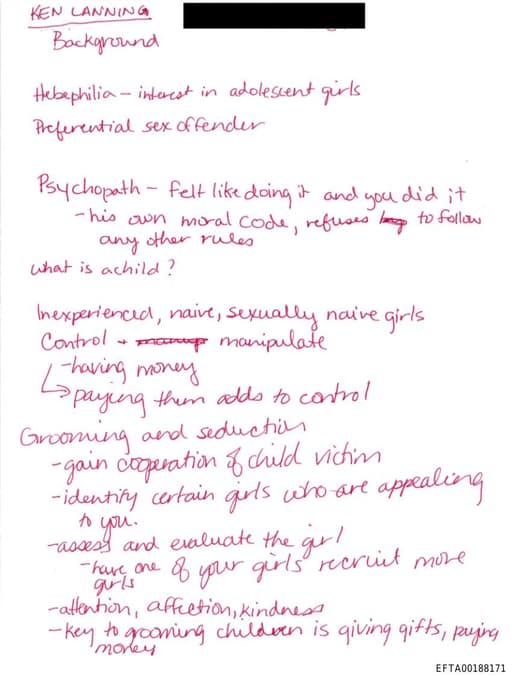 KEN LANNING
Background
Hebephilia – interest in adolescent girls
Preferential sex offender
Psychopath – felt like doing it and you did it
- his own moral code, refuses to follow
any other rules
what is a child?
Inexperienced, naive, sexually naive girls
Control + manipulate
- having money
↳ paying them adds to control
Grooming and seduction
- gain cooperation of child victim
- identify certain girls who are appealing
to you.
- assess and evaluate the girl
- have one of your girls recruit more
girls
- attention, affection, kindness
- key to grooming children is giving gifts, paying
money
EFTA00188171